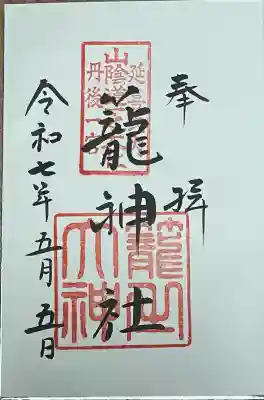 奉拝
籠神社
令和七年五月五日
山陰道
丹後一宮
籠之大神